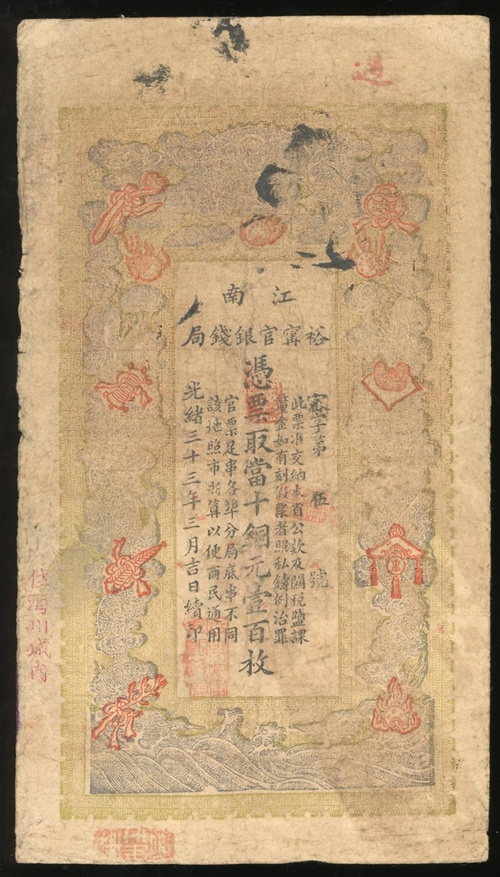 江南
裕甯官銀錢局
字第 伍 號
此票准交納本省公款及關稅鹽課
釐金如有刻假票者照私鑄例治罪
憑票取當十銅元壹百枚
官票足串各埠分局底串不同
該地照市折算以便商民通用
光緒三十三年三月吉日續印
城內